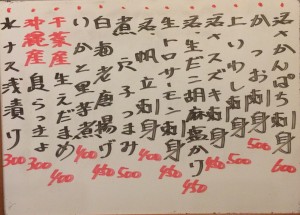 活かんぱち刺身 600
かつお刺身 500
上いわし刺身 500
活スズキ刺身 450
活生だこ胡麻塩かり 450
生トロサーモン刺身 450
活帆立刺身 400
煮穴子つまみ 500
白海老唐揚げ 450
いかと里芋煮 400
千葉産 生えだまめ 400
沖縄産 島らっきょ 300
水ナス浅漬け 300